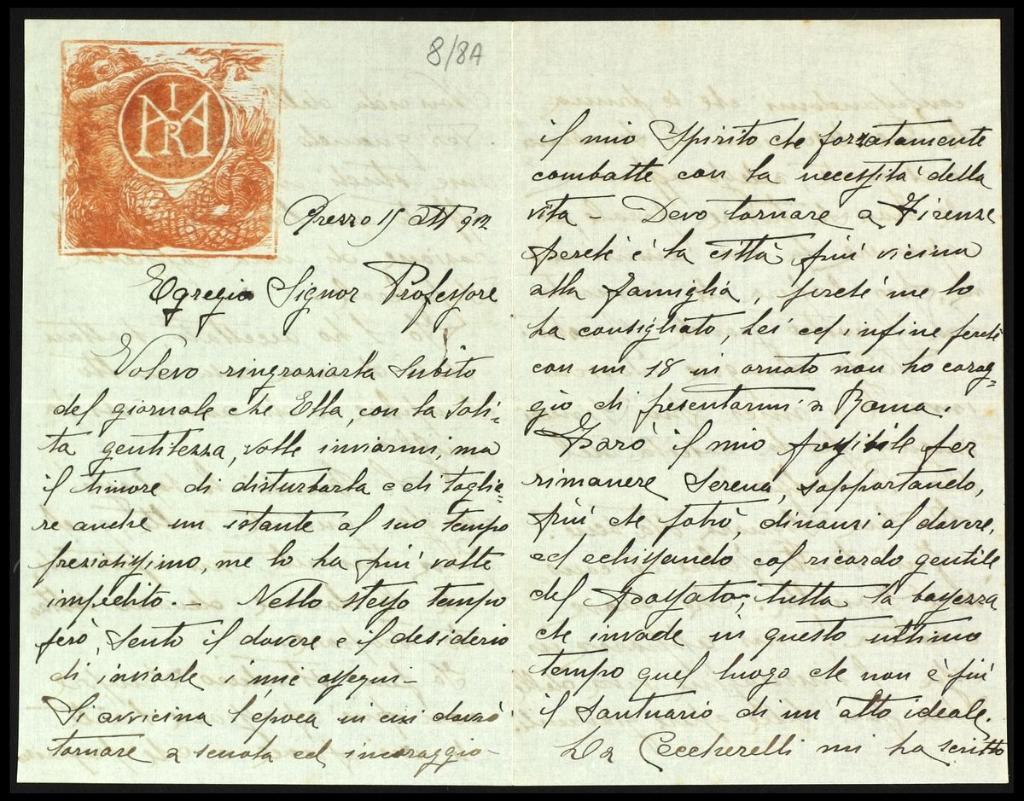 8/8A
MIRA
Arezzo 15 Ott 912
Egregio Signor Professore
Volevo ringraziarla subito
del giornale che Ella, con la soli-
ta gentilezza, volle inviarmi, ma
il timore di disturbarla e di toglie-
re anche un istante al suo tempo
preziosissimo, me lo ha più volte
impedito. - Nello stesso tempo
però, sento il dovere e il desiderio
di inviarle i miei ossequi -
Si avvicina l'epoca in cui dovrò
tornare a scuola ed incoraggio
il mio Spirito che forzatamente
combatte con la necessità della
vita - Devo tornare a Firenze
perché è la città più vicina
alla famiglia, perché me lo
ha consigliato, Lei ed infine perché
con un 18 in ornato non ho corag-
gio di presentarmi a Roma.
Farò il mio possibile per
rimanere serena, sopportando,
più che potrò, dinanzi al dovere,
ed col ricordo gentile
del Passato, tutta la bassezza
che invade in questo ultimo
tempo quel luogo che non è più
il santuario di un alto ideale.
La Ceccherelli mi ha scritto